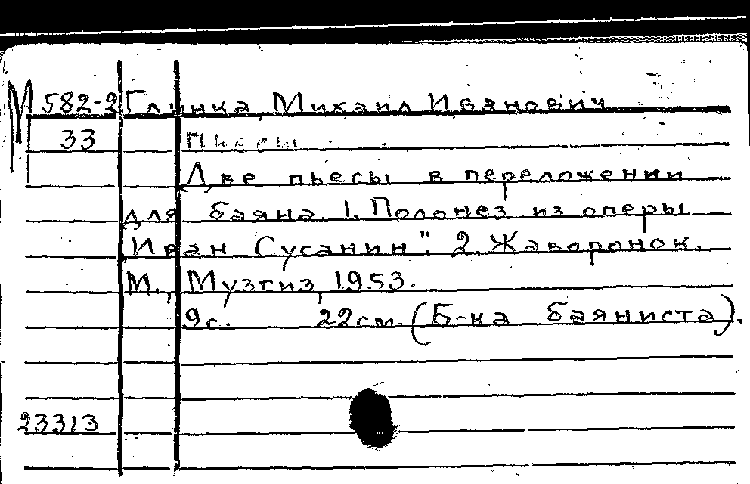 М 582-2 Глинка, Михаил Иванович
33 Пьесы
Две пьесы в переложении
для баяна. 1. Полонез из оперы
"Иван Сусанин". 2. Жаворонок.
М., Музгиз, 1953.
9с. 22см. (Б-ка баяниста).
23313